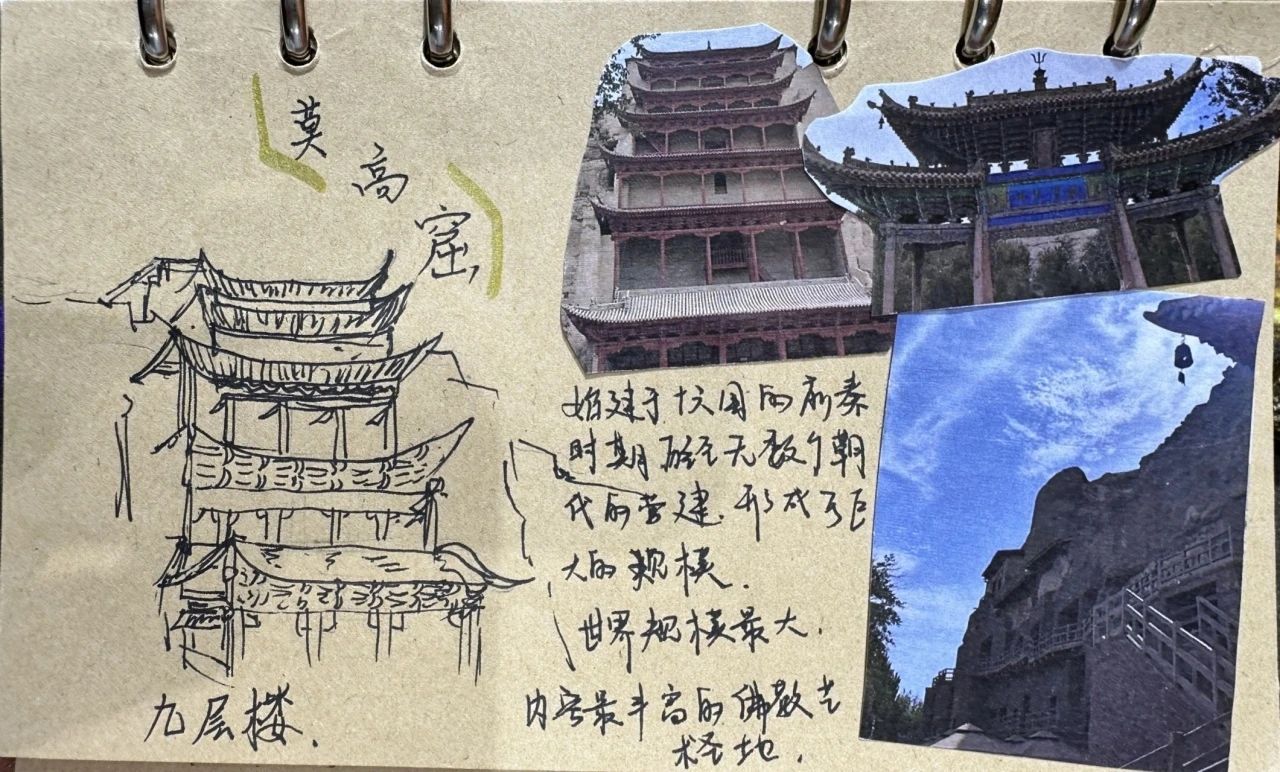 莫高窟
始建于十六国的前秦
时期 历经无数个朝
代的营建.形成了巨
大的规模.
世界规模最大.
内容最丰富的佛教艺
术圣地.
九层楼.